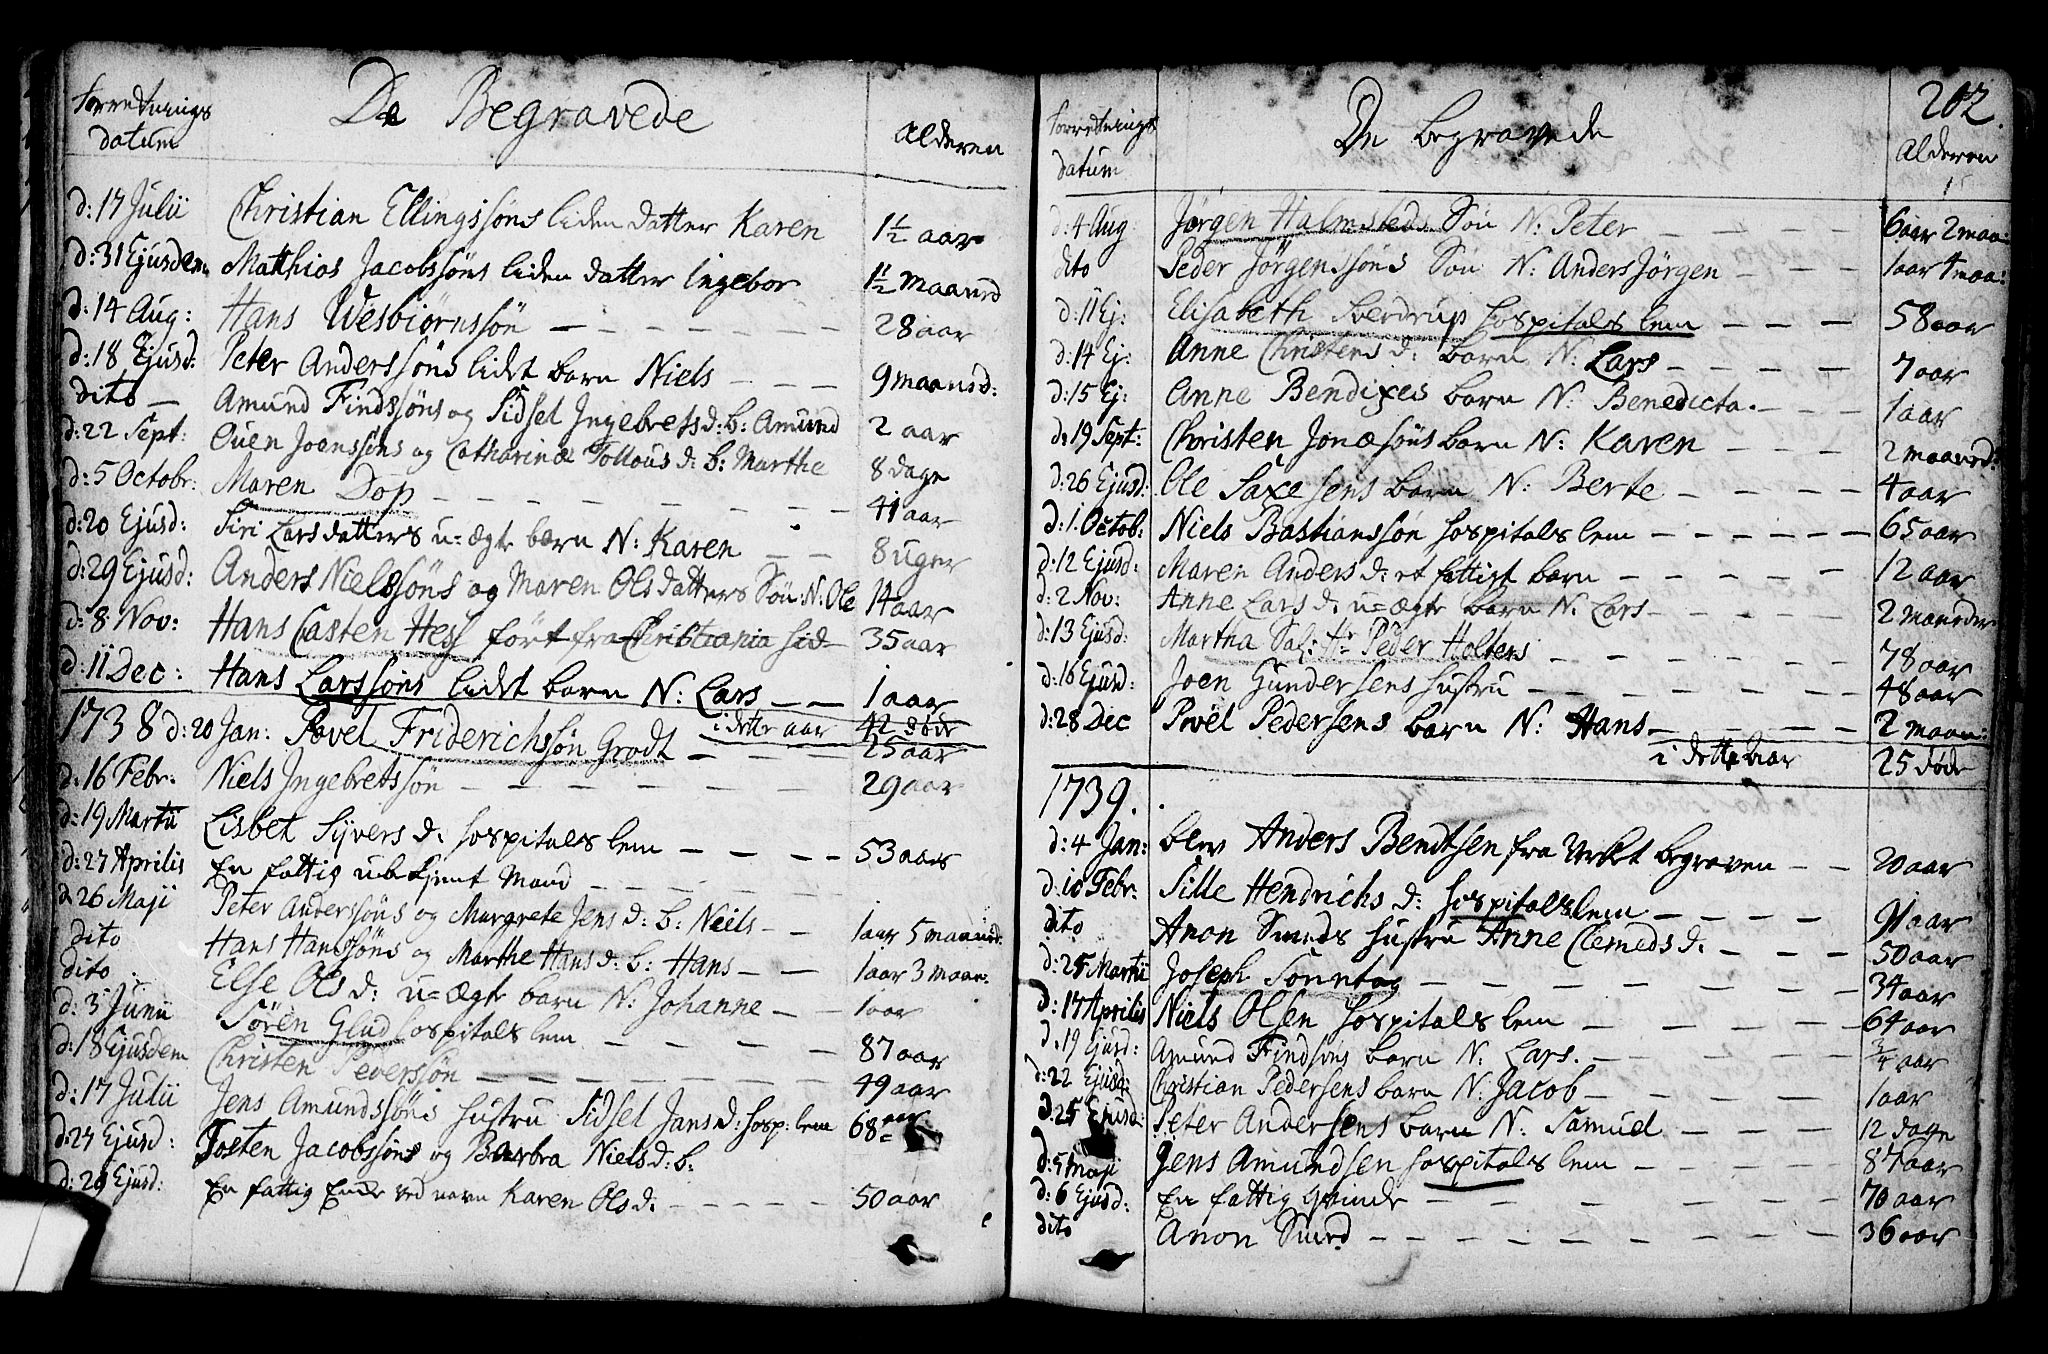 Forretnings datum De Begravede Alderen
d: 17 Julii Christian Ellingssøns liden datter Karen 1½ aar
d: 31 Ejusdem Mathias Jacobssøns liden datter Ingebor 1½ maaned
d: 14 Aug: Hans Wesbiørnssøn 28 aar
d: 18 Ejusd: Peter Anderssøns lidet barn Niels 9 maaned:
dito Amund Findssøns og Sidsel Ingebretsd: b: Amund 2 aar
d: 22 Sept: Ouen Joenssøns og Catharinæ d: b: Marthe 8 dage
d: 5 Octobr: Maren Dop 41 aar
d: 20 Ejusd: Siri Larsdatters u=ægte barn N: Karen 8 uger
d: 29 Ejusd: Anders Nielssøns og Maren Olsdatters Søn: N: Ole 14 aar
d: 8 Nov: Hans Casten Hess ført fra Christiania hid 35 aar
d: 11 Dec: Hans Larssøns lidet barn N: Lars 1 aar
i dette aar 42 døde
1738 d: 20 Jan: Povel Friderichssøn Grodt 25 aar
d: 16 Febr: Niels Ingebretssøn 29 aar
d: 19 Martii Lisbet Sijvers d: hospitals lem 53 aar
d: 27 Aprilis En fattig ubekjent Mand
d 26 Maji Peter Anderssøns og Margrete Jens d: b: Niels 1 aar 5 maaned:
dito Hans Hanssøns og Marthe Hans d: b: Hans 1 aar 3 maan:
dito Else Ols d: u=ægte barn N: Johanne 1 aar
d: 3 Junii Søren Glud hospitals lem 87 aar
d: 18 Ejusdem Christen Peverssøn 49 aar
d: 17 Julii Jens Amundssøns hustru Sidsel Jansd: hosp: lem 68 aar
d: 27 Ejusd: Josten Jacobssøns og Barbra Nielsd: b:
d: 29 Ejusd: En fattig Enke ved navn Karen Olsd: 50 aar
202
Forretnings datum De begravede Alderen
d: 4 Aug Jørgen Halmsteds Søn N: Peter 6 aar 2 maa:
dito Peder Jørgenssøns Søn N: Anders Jørgen 1 aar 4 maa:
d: 11 Ej: Elisabeth Sverdrup hospitals lem 58 aar
d: 14 Ej: Anne Christens d: barn N: Lars 7 aar
d: 15 Ej: Anne Bendixes barn N: Benedicta. 1 aar
d. 19 Sept: Christen Jonæsøns barn N: Karen 2 maaned:
d: 26 Ejusd: Ole Saxesens barn N: Berte 4 aar
d: 1. Octob: Niels Bastianssøn hospitals lem 65 aar
d: 12 Ejusd: Maren Anders d: et fattigt barn 12 aar
d: 2 Nov: Anne Lars d: u=ægte barn N. Lars 2 maaneder
d: 13 Ejusd: Martha Sal: Hr Peder Holters 78 aar
d: 16 Ejusd: Joen Gundersens hustru 48 aar
d: 28 Dec Povel Pedersens barn N: Hans 2 maan:
i dette aar 25 døde
1739.
d: 4 Jan: blev Anders Bendtsen fra Verket begraven 20 aar
d. 10 Febr: Sille Hendrichs d: hospitalslem 91 aar
dito Anon Smeds hustru Anne Clemeds d. 50 aar
d: 25 Martii Joseph Sonntag 34 aar
d: 17 Aprilis Niels Olsen hospitals lem 64 aar
d. 19 Ejusd: Amund Findsøns barn N. Lars. ¾ aar
d: 22 Ejusd: Christian Pedersens barn N: Jacob 1 aar
d. 25 Ejusd: Peter Andersens barn N: Samuel 12 dage
d: 5 Maji Jens Amundsen hospitals lem 87 aar
d: 6 Ejusd: En fattig Qvinde 70 aar
dito Anon Smed 36 aar